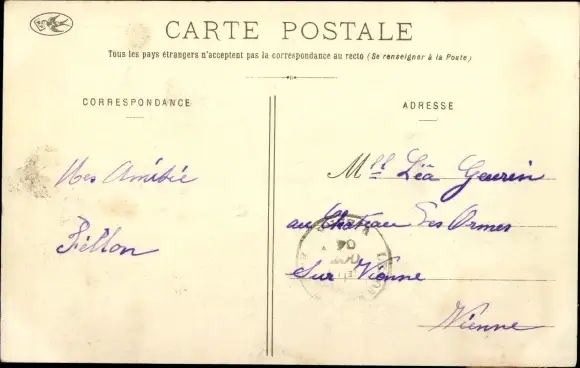 CARTE POSTALE
Tous les pays étrangers n'acceptent pas la correspondance au recto (Se renseigner à la Poste)
CORRESPONDANCE
ADRESSE
Mes Amitié
Fillon
Mll Léa Geurin
au Château des Ormes
Sur Vienne
Vienne
04